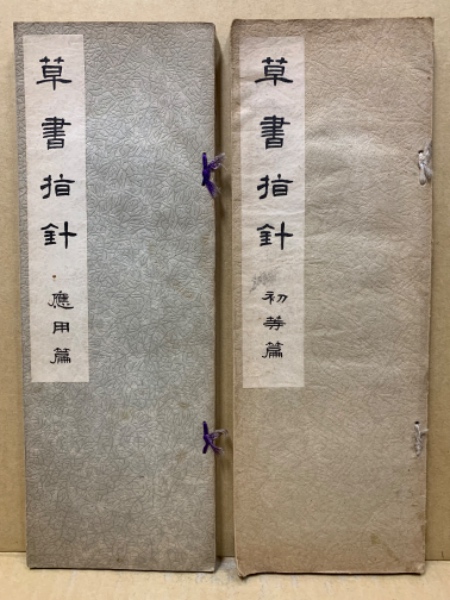 草書指針
應用篇
草書指針
初等篇